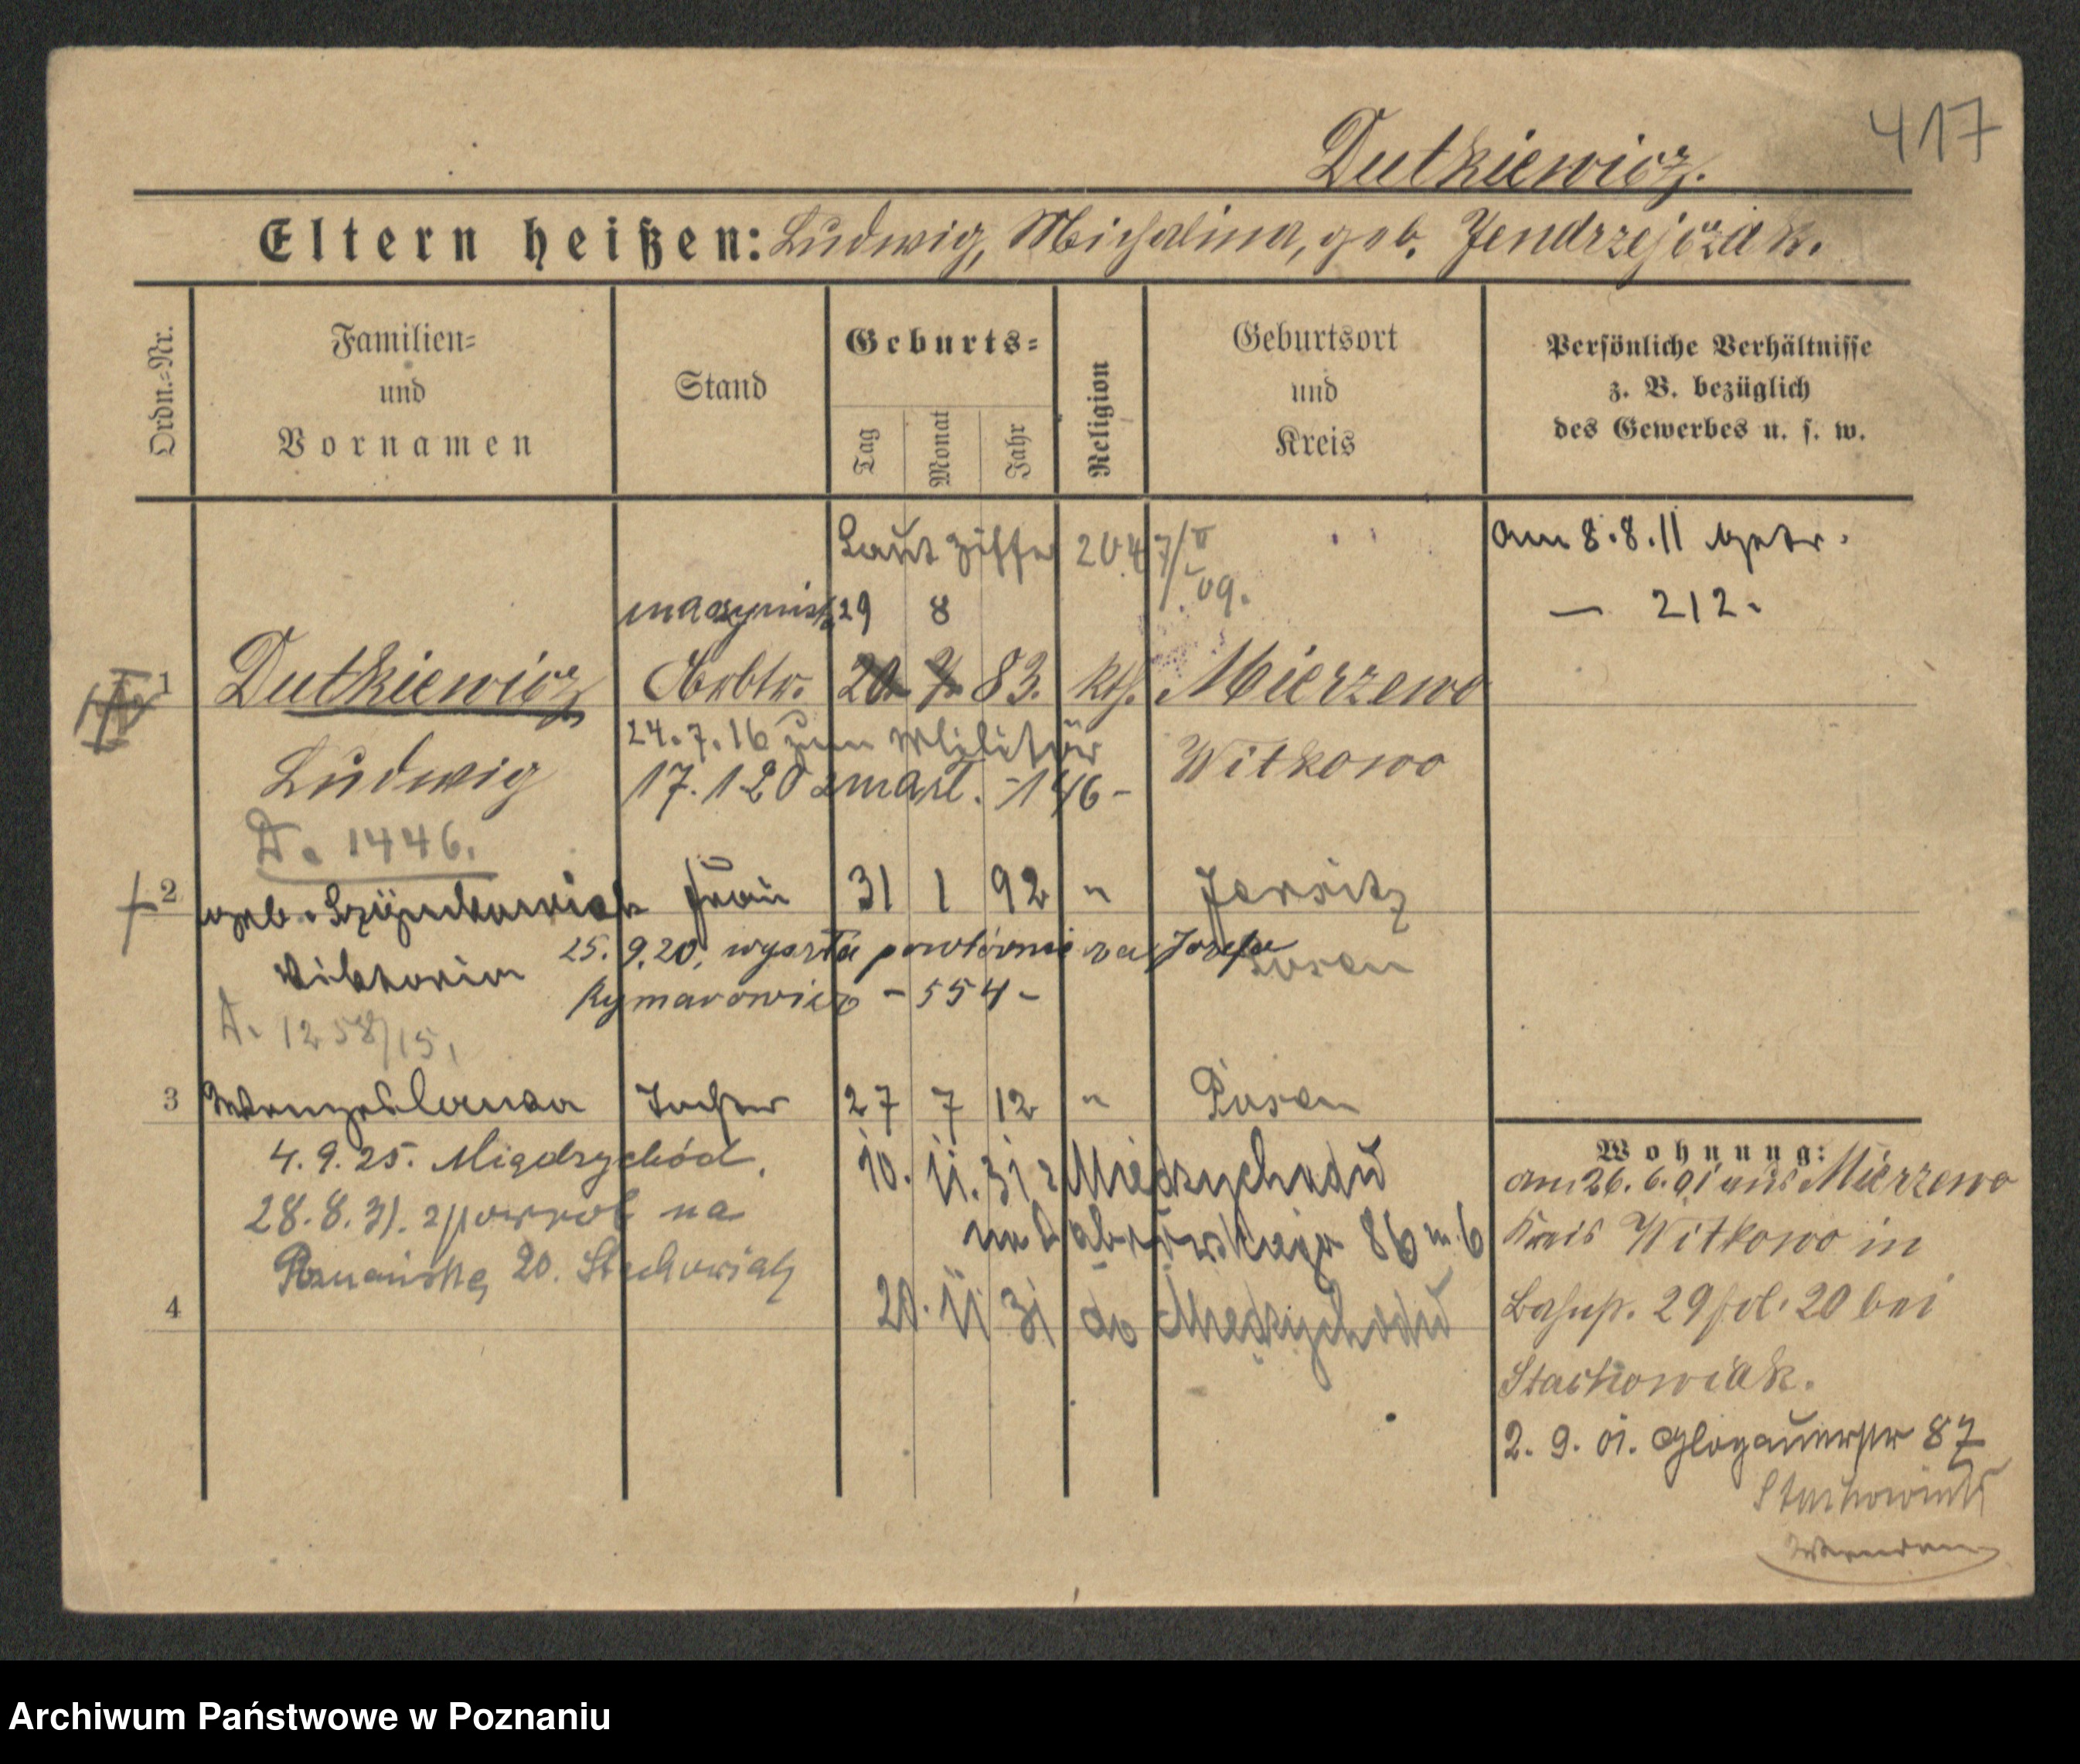 417
Dutkiewicz.
Eltern heißen: Ludwig, Michalina, geb. Jendrzejczak.
Ordn.-Nr.
Familien-
und
Vornamen
Stand
Geburts-
Tag
Monat
Jahr
Religion
Geburtsort
und
Kreis
Persönliche Verhältnisse
z. B. bezüglich
des Gewerbes u. s. w.
Laut Ziffer 204 7/II 09.
am 8.8.11 getr.
— 212.
maszynista 29 8
1 Dutkiewicz Arbtr. 20. 7. 83. kth. Mierzewo
24.7.16 zum Militär
Ludwig
17.1.20 zmarł. -146-
Witkowo
D. 1446.
2 geb. Frau 31 1 92 " Jersitz
25.9.20. wyszła powtórnie za Józefa
Posen
Viktoria
Rymarowicz - 554 -
A. 1258/15.
3 Wenzeslawa Tochter 27 7 12 " Posen
4.9.25. Międzychód.
10. 11. 31 z Międzychodu
28.8.31. z powrot na
na Dąbrowskiego 86 m. 6
Poznańską 20. Stachowiak
4
20. 11 31 do Międzychodu
Wohnung:
am 26.6.01 aus Mierzewo
Kreis Witkowo in
29 fol. 20 bei
Stachowiak.
2. 9. 01. Glogauerstr 87
Stachowiak
Archiwum Państwowe w Poznaniu